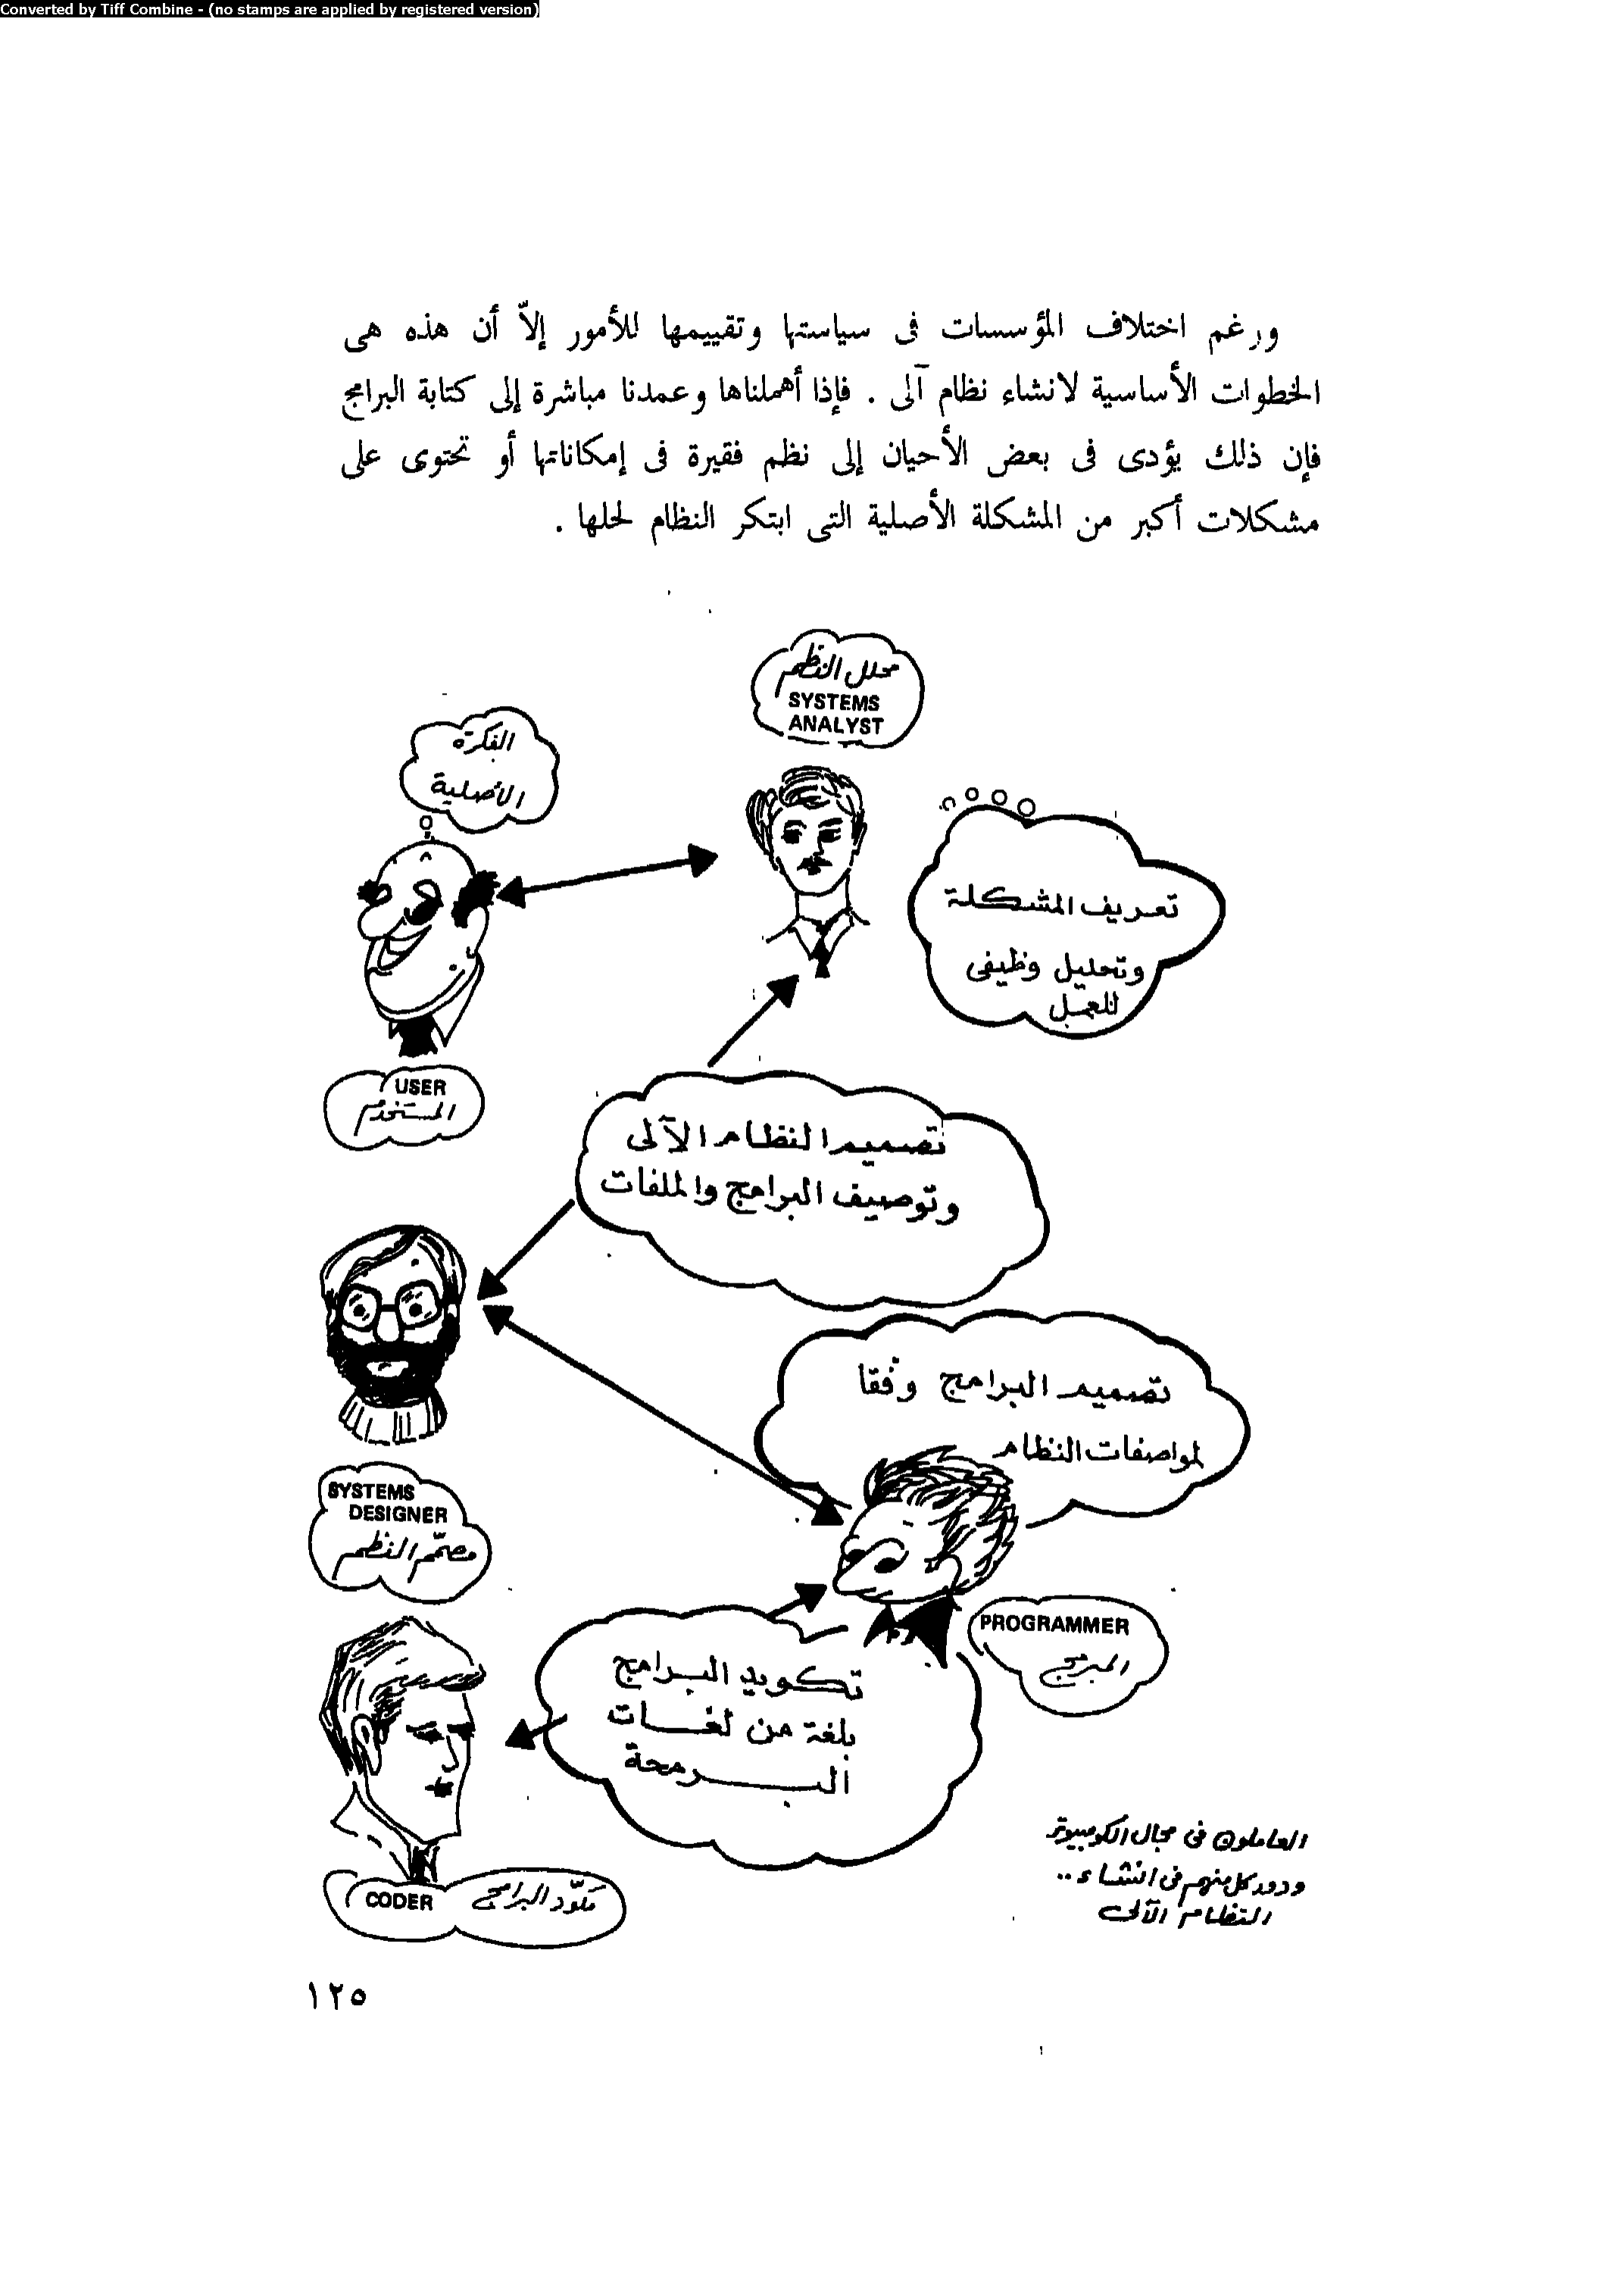 Converted by Tiff Combine - (no stamps are applied by registered version)
ورغم اختلاف المؤسسات فى سياستها وتقييمها للأمور إلاّ أن هذه هى
الخطوات الأساسية لانشاء نظام آلى . فإذا أهملناها وعمدنا مباشرة إلى كتابة البرامج
فإن ذلك يؤدى فى بعض الأحيان إلى نظم فقيرة فى إمكاناتها أو تحتوى على
مشكلات أكبر من المشكلة الأصلية التى ابتكر النظام لحلها .
محلل النظم
SYSTEMS
ANALYST
الفكرة
الأصلية
تعريف المشكلة
وتحليل وظيفى
للعمل
USER
المستخدم
تصميم النظام الآلى
وتوصيف البرامج والملفات
تصميم البرامج وفقا
لمواصفات النظام
SYSTEMS
DESIGNER
مصمّم النظم
PROGRAMMER
المبرمج
تكويد البرامج
بلغة من لغات
البرمجة
CODER
مكوّد البرامج
العاملون فى مجال الكومبيوتر
ودور كل منهم فى انشاء ..
النظام الآلى
١٢٥